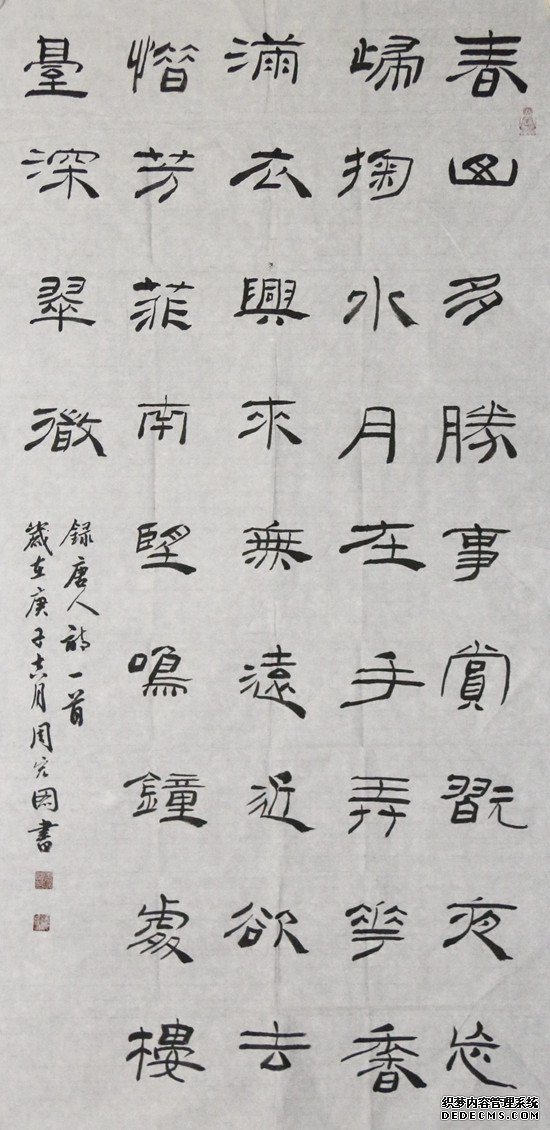 春山多勝事賞翫夜忘
歸掬水月在手弄華香
滿衣興來無遠近欲去
惜芳菲南望鳴鐘處樓
臺深翠微
録唐人詩一首
歲在庚子月周国書
织梦内容管理系统
DEDECMS.COM